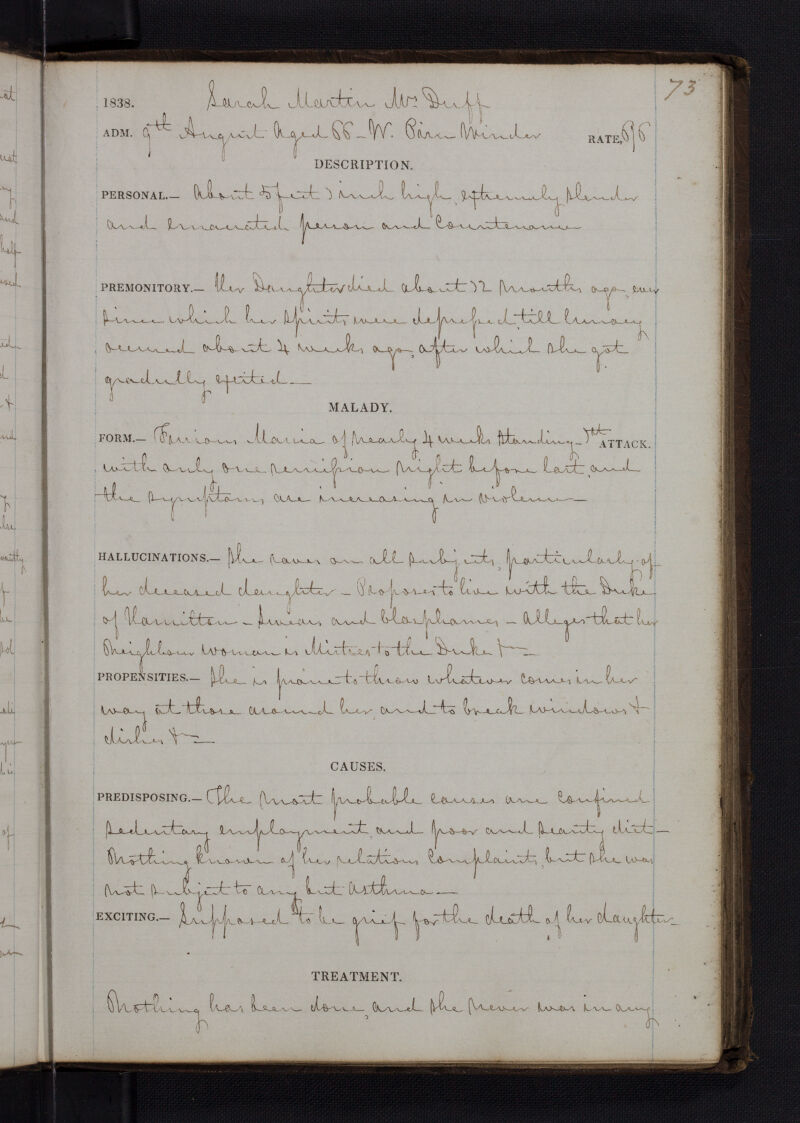 73
1838. Sarah Martin Mrs Duff
ADM. 9th August Aged 66 - W. Pirn Winder RATE,
DESCRIPTION.
PERSONAL.— About 5 feet 1 inch high, extremely slender
and emaciated person and Countenance
PREMONITORY.— Her Daughter died about 12 months ago, ever
since which her spirits were depressed, till lunacy
occurred about 4 weeks ago, after which she got
gradually excited.—
MALADY.
FORM.— Furious Mania of nearly 4 weeks standing - 1st ATTACK.
with only one remission night before last, and
the symptoms, are increasing in violence —
HALLUCINATIONS.— She raves on all subjects, particularly of
her deceased daughter - Proposes to live with the Duke
of Hamilton - Swears and blasphames - Alleges that her
Neighbour woman is Mistress to the Duke &c —
PROPENSITIES.— She is prone to throw whatever comes in her
way at those around her, and to break windows &
dishes &c —
CAUSES.
PREDISPOSING.— The most probable causes are Confined
sedentary employment, and poor and scanty diet —
Nothing known of her relations Complaints, but she was
not subject to any but Asthma —
EXCITING.— Supposed to be grief for the death of her daughter
TREATMENT.
Nothing has been done, and she never was in any